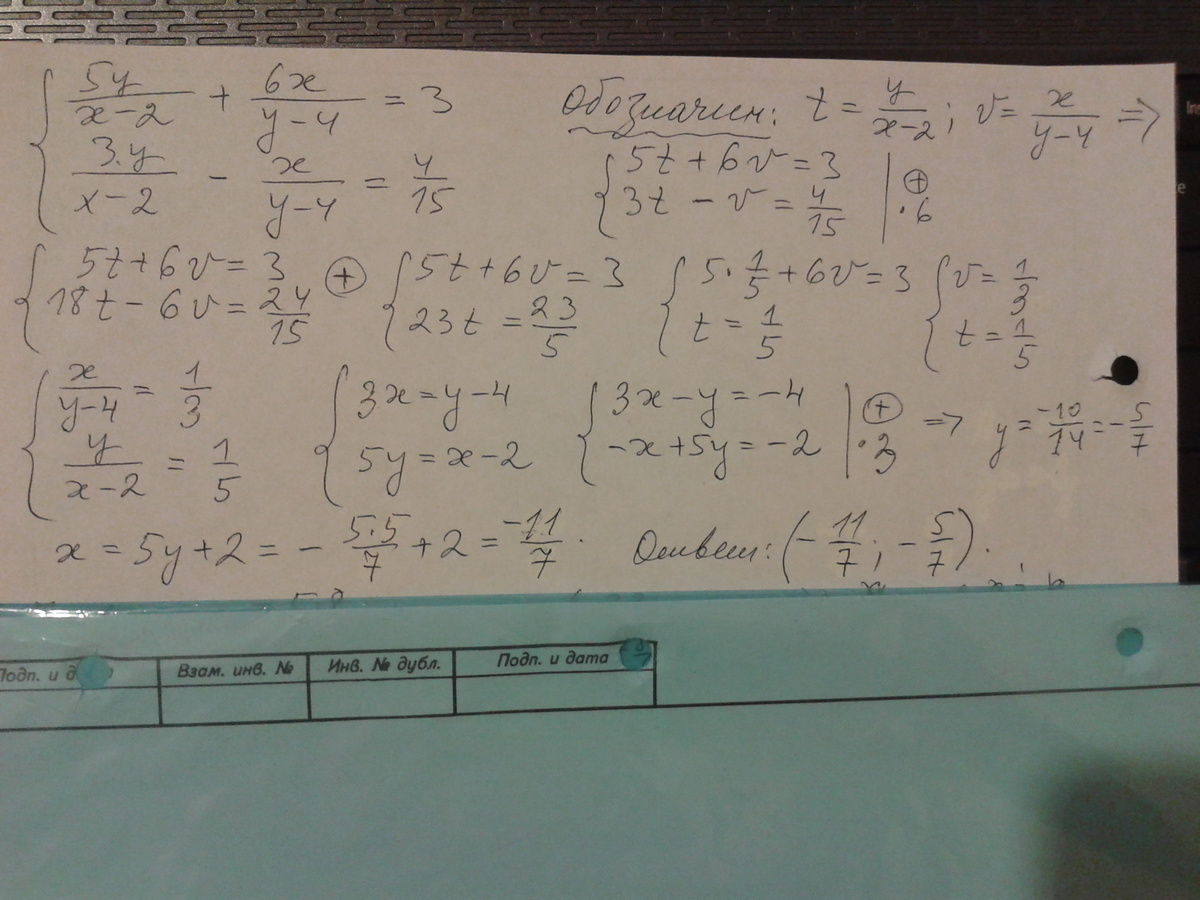 { 5y/(x-2) + 6x/(y-4) = 3
{ 3·y/(x-2) - x/(y-4) = 4/15
Обозначим: t = y/(x-2); v = x/(y-4) =>
{ 5t + 6v = 3
{ 3t - v = 4/15 | ⊕ ·6
{ 5t + 6v = 3
{ 18t - 6v = 24/15 ⊕
{ 5t + 6v = 3
{ 23t = 23/5
{ 5·1/5 + 6v = 3
{ t = 1/5
{ v = 1/3
{ t = 1/5
{ x/(y-4) = 1/3
{ y/(x-2) = 1/5
{ 3x = y-4
{ 5y = x-2
{ 3x - y = -4
{ -x + 5y = -2 | ⊕ ·3 => y = -10/14 = -5/7
x = 5y + 2 = - 5·5/7 + 2 = -11/7. Ответ: (-11/7; -5/7).
Взам. инв. № Инв. № дубл. Подп. и дата